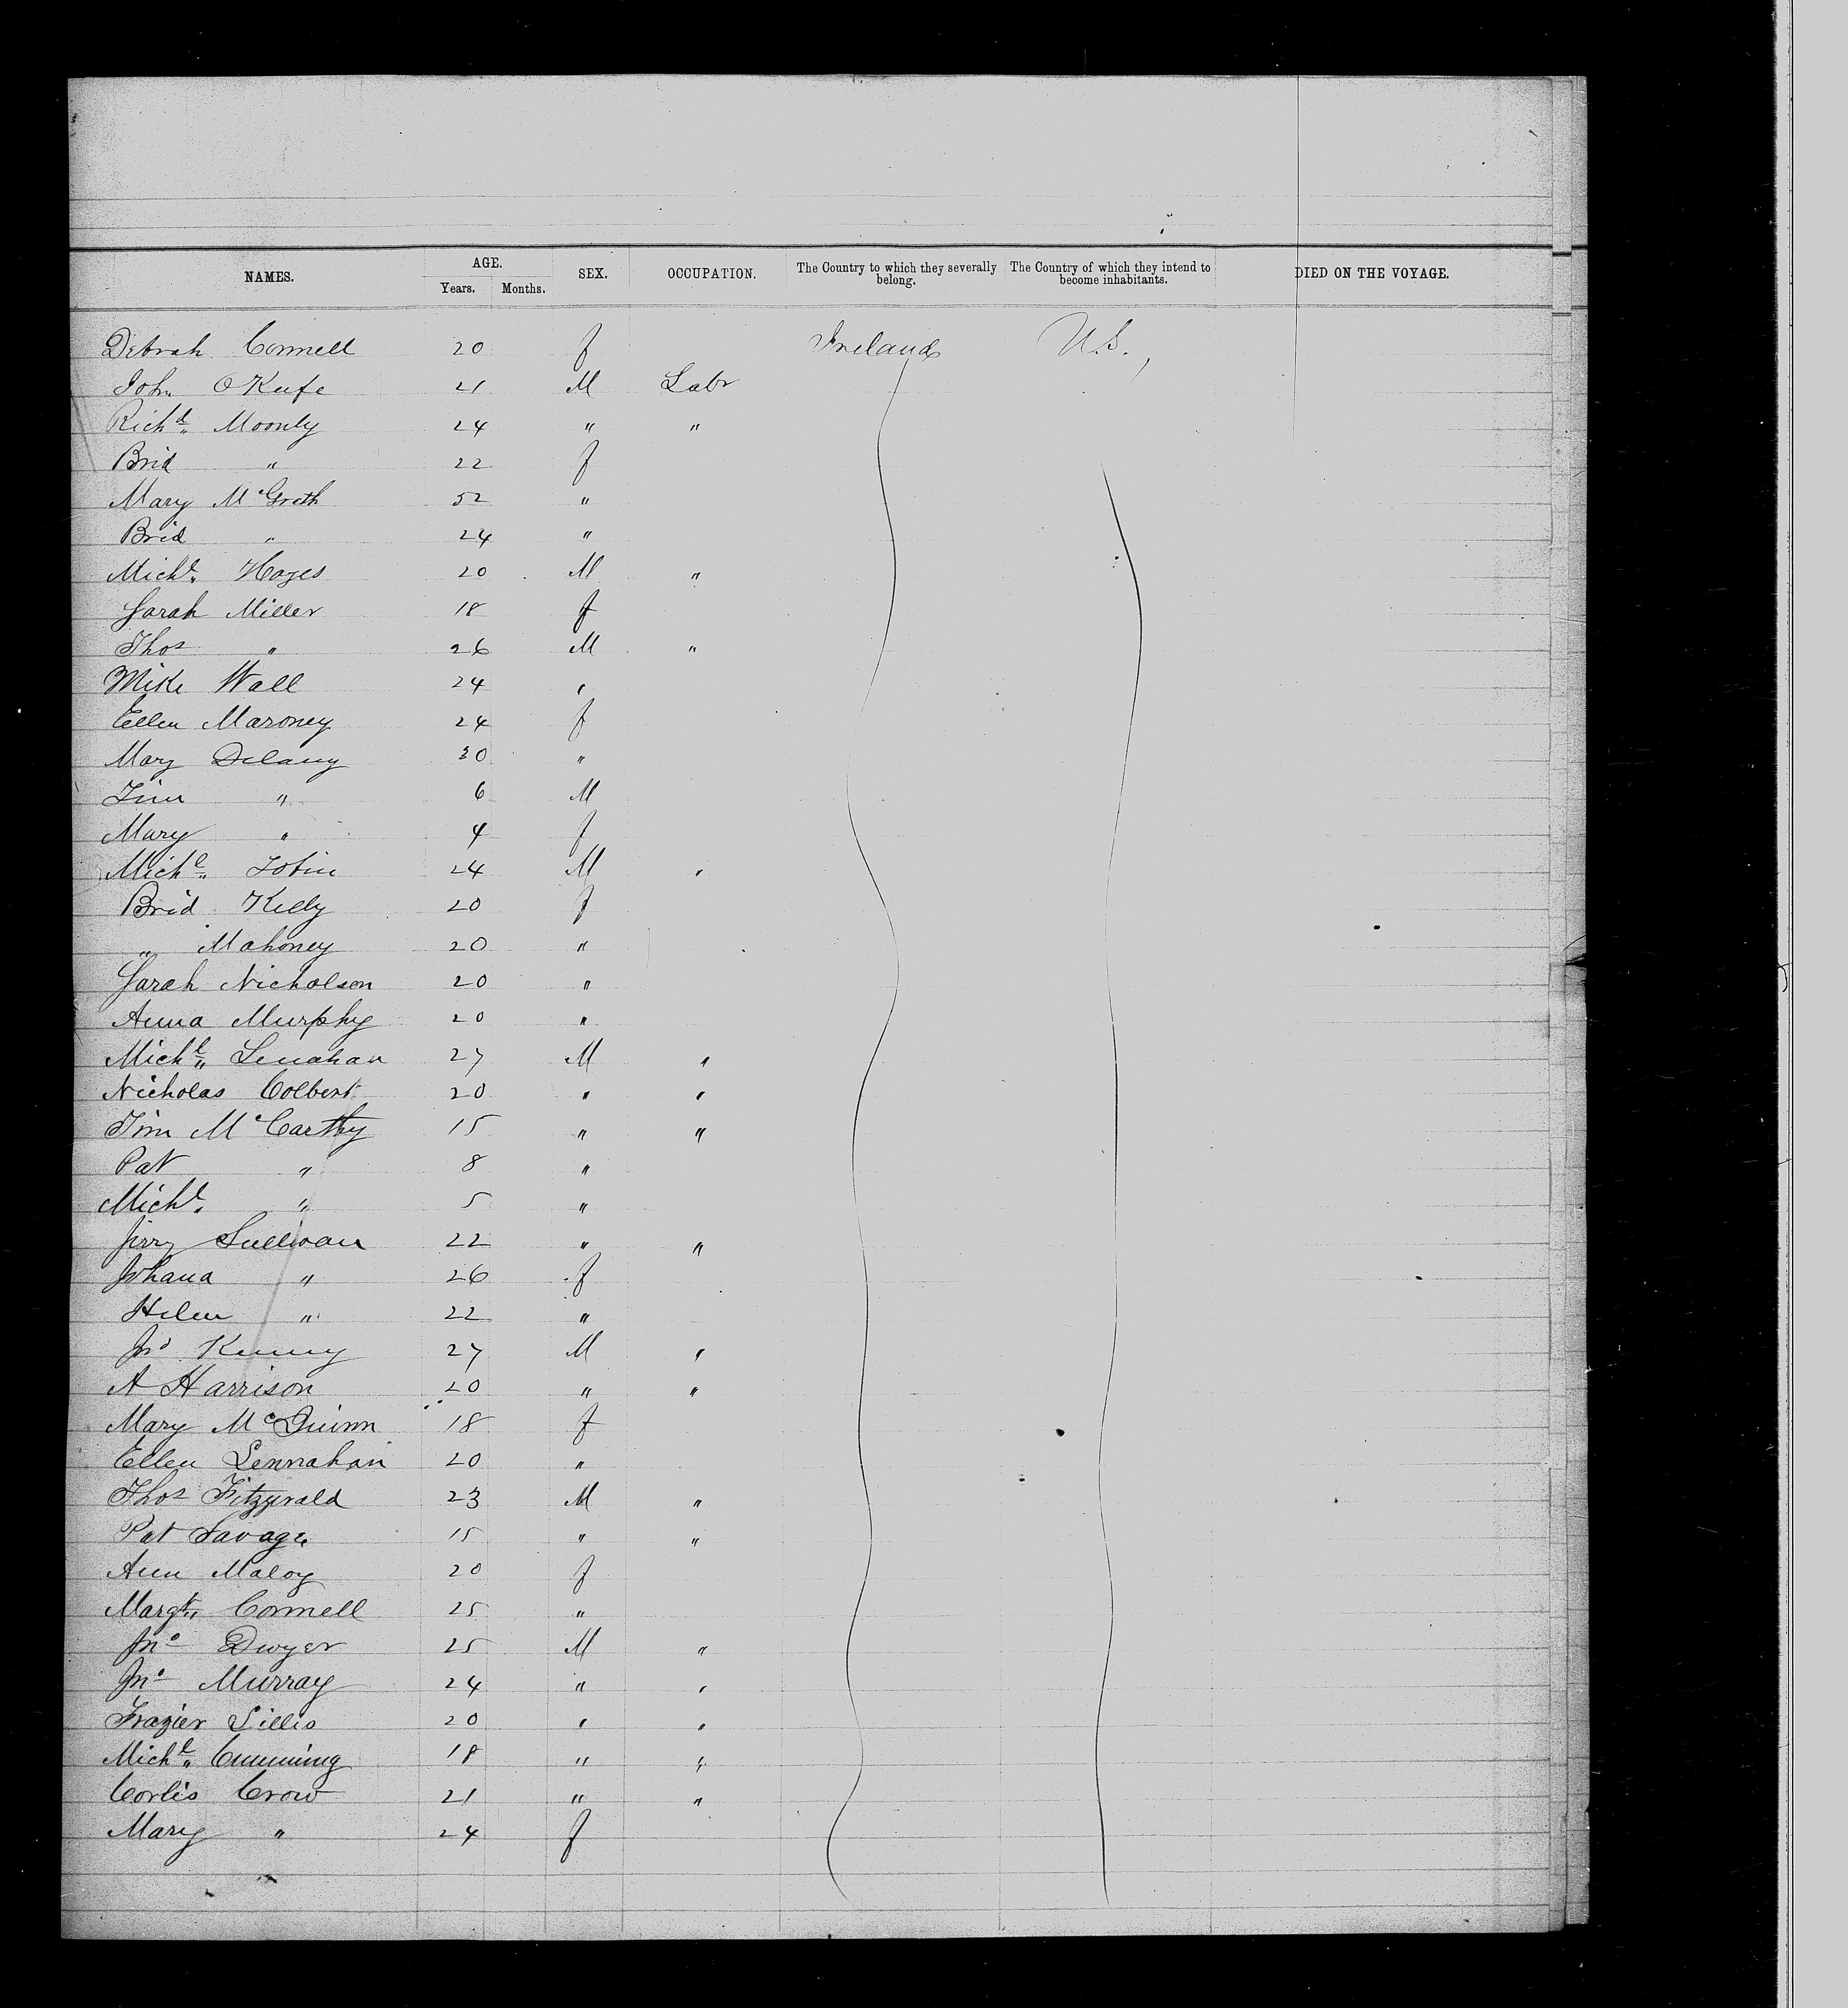 NAMES. AGE. Years. Months. SEX. OCCUPATION. The Country to which they severally belong. The Country of which they intend to become inhabitants. DIED ON THE VOYAGE.
Debrah Connell 20 f Ireland U.S.,
John O Keefe 21 M Labr
Richd Moonly 24 " "
Brid " 22 f
Mary McGrath 52 "
Brid " 24 "
Michl Hayes 20 M "
Sarah Miller 18 f
Thos " 26 M "
Mike Wall 24 "
Ellen Maroney 24 f
Mary Delany 30 "
Tim " 6 M
Mary " 4 f
Michl Tobin 24 M "
Brid Kelly 20 f
" Mahoney 20 "
Sarah Nicholson 20 "
Anna Murphy 20 "
Michl Lenahan 27 M "
Nicholas Colbert 20 " "
Tim McCarthy 15 " "
Pat " 8 "
Michl " 5 "
Jerry Sullivan 22 " "
Johana " 26 f
Helen " 22 "
Jno Kenny 27 M "
A Harrison 20 " "
Mary McQuinn 18 f
Ellen Lennahan 20 "
Thos Fitzgerald 23 M "
Pat Savage 15 " "
Ann Maloy 20 f
Margt Connell 25 "
Jno Dwyer 25 M "
Jno Murray 24 " "
Frazier Lillis 20 " "
Michl Cumming 18 " "
Corlis Crow 21 " "
Mary " 24 f